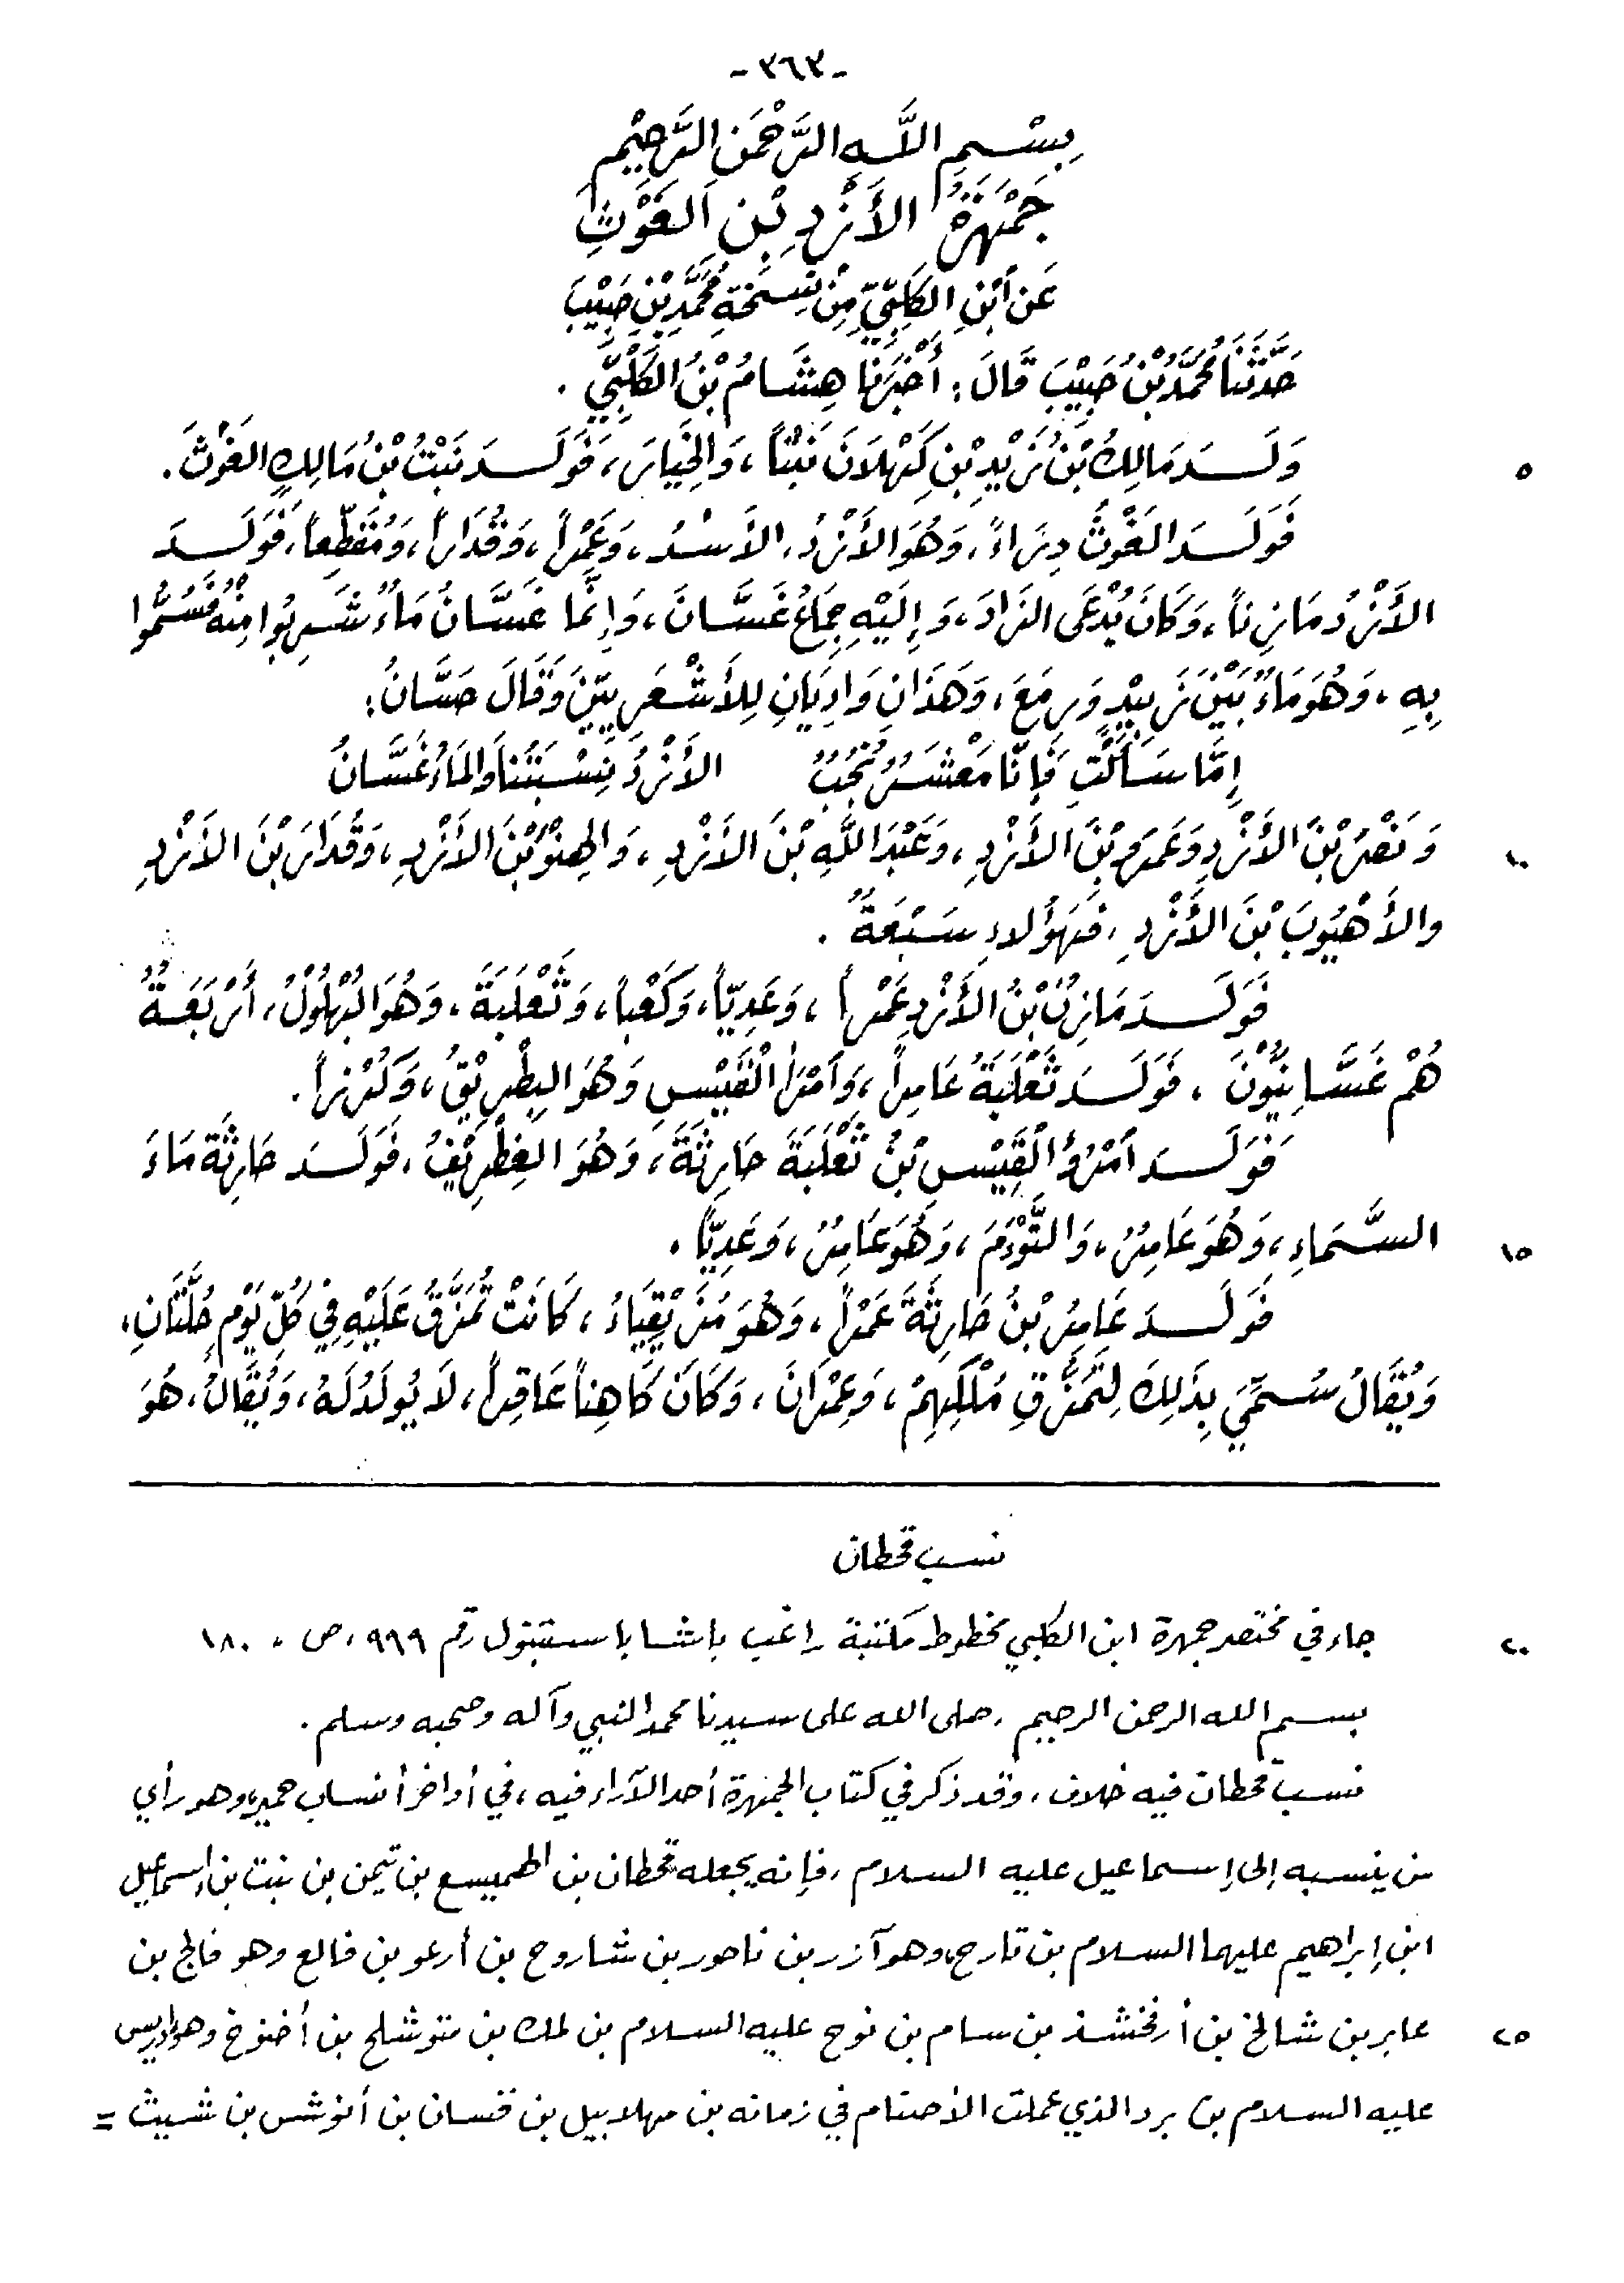 -٣٦٣-
بِسْمِ اللَّهِ الرَّحْمَنِ الرَّحِيْمِ
جَمْهَرَةُ الأَزْدِ بْنِ الغَوْثِ
عَنِ ابْنِ الكَلْبِيِّ مِنْ نُسْخَةِ مُحَمَّدِ بْنِ حَبِيْبَ
حَدَّثَنَا مُحَمَّدُ بْنُ حَبِيْبَ قَالَ: أَخْبَرَنَا هِشَامُ بْنُ الكَلْبِيِّ .
وَلَدَ مَالِكُ بْنُ زَيْدِ بْنِ كَهْلَانَ نَبْتاً، وَالخِيَارَ، فَوَلَدَ نَبْتُ بْنُ مَالِكٍ الغَوْثَ. ٥
فَوَلَدَ الغَوْثُ دِرَاءً، وَهُوَ الأَزْدُ، الأَسْدُ، وَعَمْراً، وَقُدَاراً، وَمُقَطِّعاً، فَوَلَدَ
الأَزْدُ مَازِناً، وَكَانَ يُدْعَى الزَادَ، وَإِلَيْهِ جِمَاعُ غَسَّانَ، وَإِنَّمَا غَسَّانُ مَاءٌ شَرِبُوا مِنْهُ فَسُمُّوا
بِهِ، وَهُوَ مَاءٌ بَيْنَ زَبِيْدٍ وَرِمَعَ، وَهَذَانِ وَادِيَانِ لِلأَشْعَرِيِّيْنَ وَقَالَ حَسَّانُ:
إِمَّا سَأَلْتِ فَإِنَّا مَعْشَرٌ نُجُبٌ الأَزْدُ نِسْبَتُنَا وَالمَاءُ غَسَّانُ
وَنَصْرَ بْنَ الأَزْدِ وَعَمْرَو بْنَ الأَزْدِ، وَعَبْدَ اللَّهِ بْنَ الأَزْدِ، وَالهِنْوَ بْنَ الأَزْدِ، وَقُدَارَ بْنَ الأَزْدِ ١٠
والأَهْيُوبَ بْنَ الأَزْدِ، فَهَؤُلاءِ سَبْعَةٌ .
فَوَلَدَ مَازِنُ بْنُ الأَزْدِ عَمْراً، وَعَدِيّاً، وَكَعْباً، وَثَعْلَبَةَ، وَهُوَ البُهْلُوْلُ، أَرْبَعَةٌ
هُمْ غَسَّانِيُّوْنَ ، فَوَلَدَ ثَعْلَبَةُ عَامِراً، وَآمْرَأَ الْقَيْسِ وَهُوَ البِطْرِيْقُ، وَكُرْزاً .
فَوَلَدَ آمْرُؤُ الْقَيْسِ بْنُ ثَعْلَبَةَ حَارِثَةَ، وَهُوَ الغِطْرِيْفُ، فَوَلَدَ حَارِثَةُ مَاءَ
السَّمَاءِ، وَهُوَ عَامِرٌ، وَالتَّوْءَمَ، وَهُوَ عَامِرٌ، وَعَدِيّاً . ١٥
فَوَلَدَ عَامِرُ بْنُ حَارِثَةَ عَمْراً، وَهُوَ مُزَيْقِيَاءُ، كَانَتْ تُمَزَّقُ عَلَيْهِ فِي كُلِّ يَوْمٍ حُلَّتَانِ،
وَيُقَالُ سُمِّيَ بِذَلِكَ لِتَمَزُّقِ مُلْكِهِمْ، وَعِمْرَانَ، وَكَانَ كَاهِناً عَاقِراً، لَا يُولَدُ لَهُ، وَيُقَالُ، هُوَ
نسب قحطان
جاء في مختصر جمهرة ابن الكلبي مخطوط مكتبة راغب باشا باستنبول رقم ٩٩٩، ص ، ١٨٠ ٢٠
بسم الله الرحمن الرحيم ، صلى الله على سيدنا محمد النبي وآله وصحبه وسلم .
نسب قحطان فيه خلاف، وقد ذكر في كتاب الجمهرة أحد الآراء فيه، في أواخر أنساب حمير، وهو رأي
من ينسبه إلى إسماعيل عليه السلام ، فإنه يجعله قحطان بن الهميسع بن تيمن بن نبت بن إسماعيل
ابن إبراهيم عليهما السلام بن تارح، وهو آزر بن ناحور بن شاروح بن أرغو بن فالع وهو فالج بن
عابر بن شالخ بن أرفخشذ بن سام بن نوح عليه السلام بن لمك بن متوشلح بن أخنوخ وهو إدريس ٢٥
عليه السلام بن يرد الذي عملت الأصنام في زمانه بن مهلابيل بن قنسان بن أنوشس بن شيث =